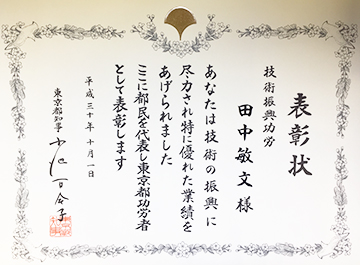 表彰状
技術振興功労
田中敏文様
あなたは技術の振興に
尽力され特に優れた業績を
あげられました
ここに都民を代表し東京都功労者
として表彰します
平成三十年十月一日
東京都知事 小池百合子